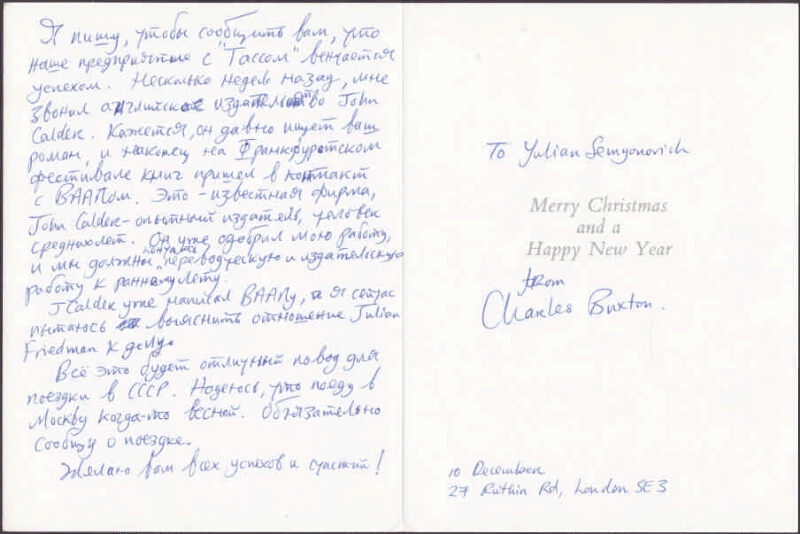 Я пишу, чтобы сообщить вам, что
наше предприятие с "Тассом" венчается
успехом. Несколько недель назад, мне
звонил английское издательство John
Calder. Кажется, он давно ищет ваш
роман, и наконец на Франкфуртском
фестивале книг пришел в контакт
с ВААПом. Это - известная фирма,
John Calder - опытный издатель, человек
средних лет. Он уже одобрил мою работу,
и мы должны кончать переводческую и издательскую
работу к раннему лету.
J Calder уже написал ВААПу, а я сейчас
пытаюсь выяснить отношение Julian
Friedman к делу.
Всё это будет отличный повод для
поездки в СССР. Надеюсь, что поеду в
Москву когда-то весной. Обязательно
сообщу о поездке.
Желаю вам всех успехов и счастий!
To Yulian Semyonovich
Merry Christmas
and a
Happy New Year
from
Charles Buxton.
10 December
27 Ruthin Rd, London SE3